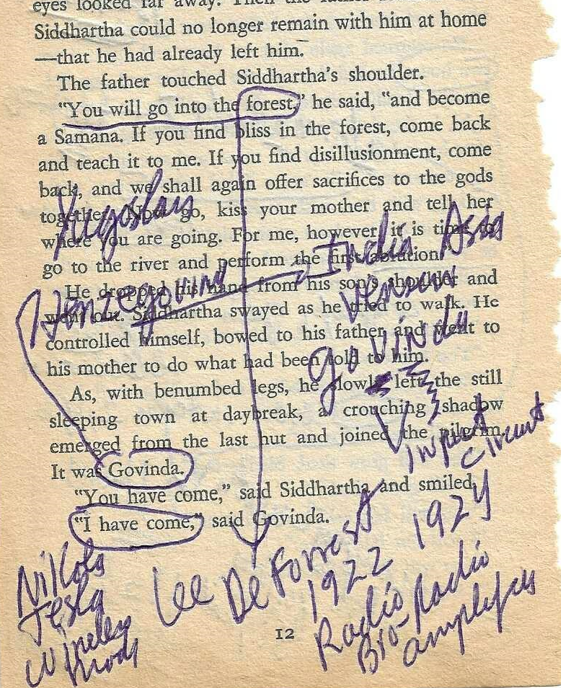 eyes looked far away. Then the father
Siddhartha could no longer remain with him at home
—that he had already left him.
The father touched Siddhartha's shoulder.
"You will go into the forest," he said, "and become
a Samana. If you find bliss in the forest, come back
and teach it to me. If you find disillusionment, come
back, and we shall again offer sacrifices to the gods
together. Now go, kiss your mother and tell her
where you are going. For me, however, it is time to
go to the river and perform the first ablution."
He dropped his hand from his son's shoulder and
went out. Siddhartha swayed as he tried to walk. He
controlled himself, bowed to his father and went to
his mother to do what had been told to him.
As, with benumbed legs, he slowly left the still
sleeping town at daybreak, a crouching shadow
emerged from the last hut and joined the pilgrim.
It was Govinda.
"You have come," said Siddhartha and smiled.
"I have come," said Govinda.
12
Yugoslav
Herzegovina
India Asia
govinda
input
circuit
Nikola
Tesla
Lee De Forrest
1922 1924
Radio
Bro-Radio